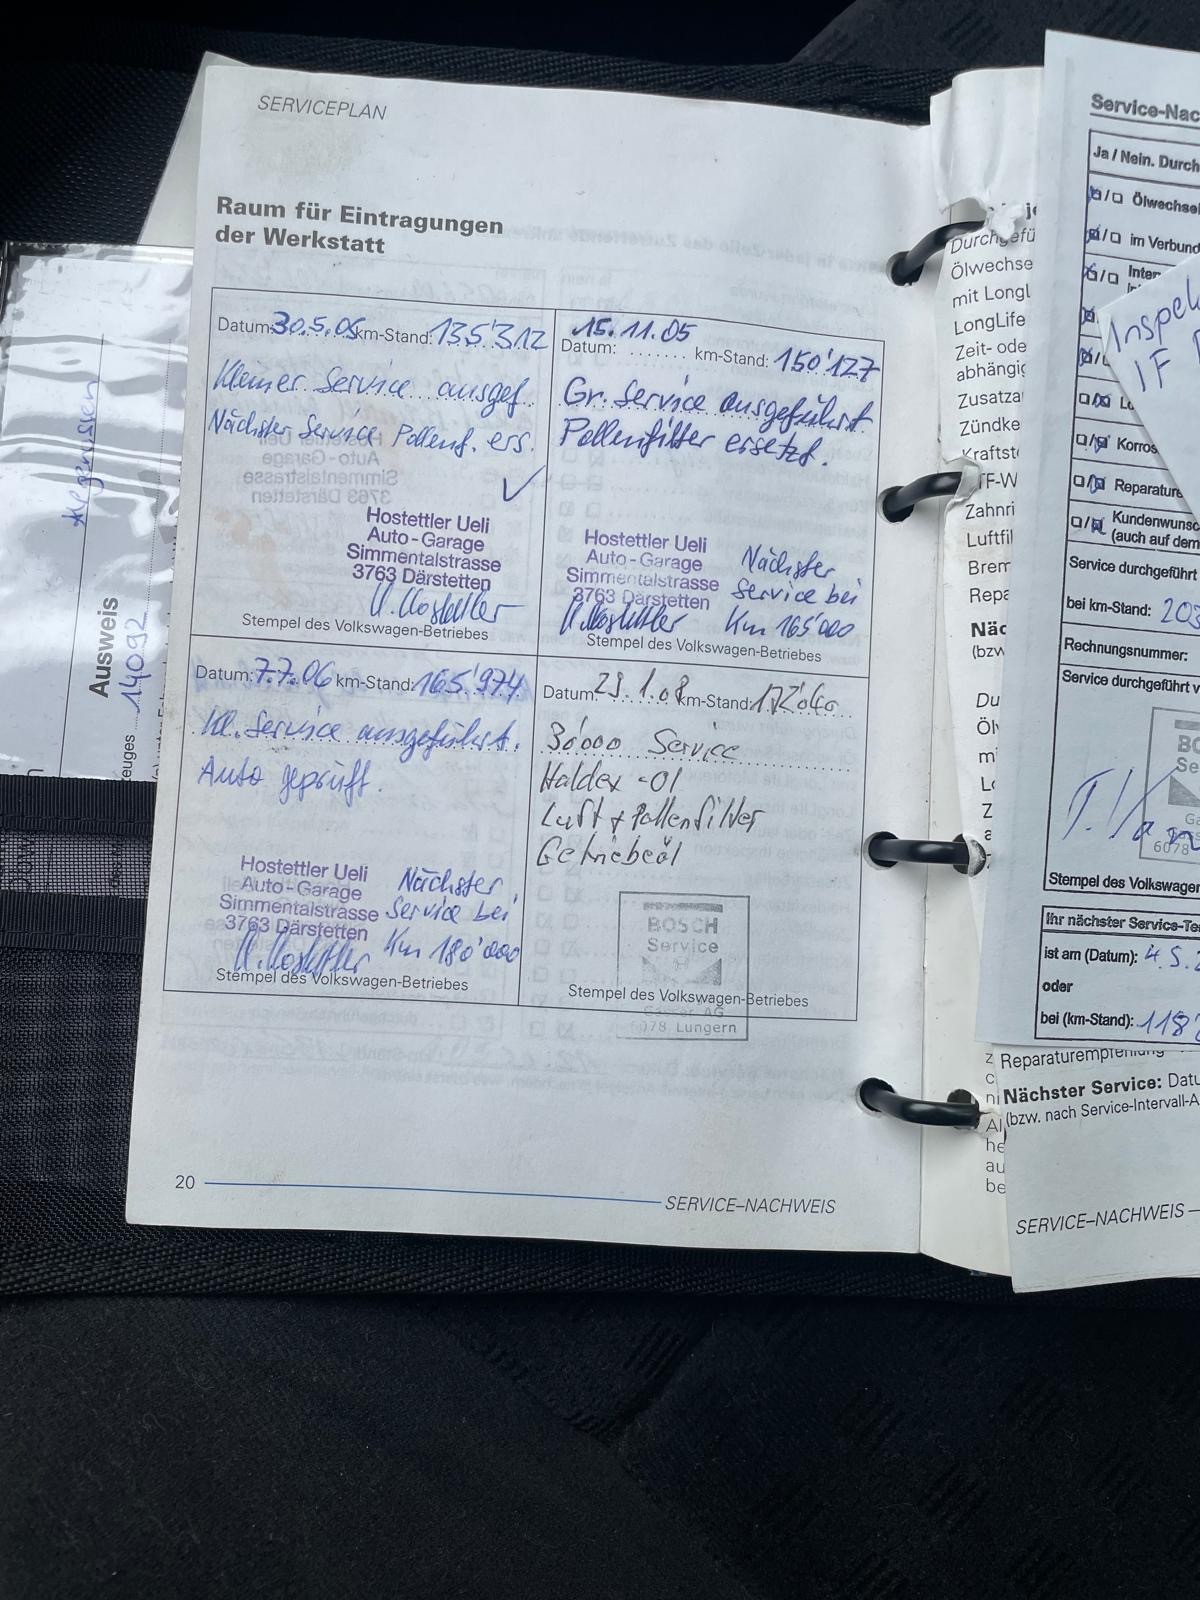 SERVICEPLAN
Raum für Eintragungen
der Werkstatt
Datum: 30.5.05 km-Stand: 135'312
Kleiner Service ausgef.
Nächster Service Pollenf. ers.
Hostettler Ueli
Auto-Garage
Simmentalstrasse
3763 Därstetten
U. Hostettler
Stempel des Volkswagen-Betriebes
15.11.05
Datum: ....... km-Stand: 150'127
Gr. Service ausgeführt
Pollenfilter ersetzt.
Hostettler Ueli
Auto-Garage
Simmentalstrasse
3763 Därstetten
U. Hostettler
Nächster
Service bei
Km 165'000
Stempel des Volkswagen-Betriebes
Datum: 7.7.06 km-Stand: 165'974
Kl. Service ausgeführt.
Auto geprüft.
Hostettler Ueli
Auto-Garage
Simmentalstrasse
3763 Därstetten
U. Hostettler
Nächster
Service bei
Km 180'000
Stempel des Volkswagen-Betriebes
Datum: 1.08 km-Stand:
30'000 Service
Haldex-Öl
Luft + Pollenfilter
Getriebeöl
BOSCH
Service
Stempel des Volkswagen-Betriebes
Gasser AG
6078 Lungern
20
SERVICE–NACHWEIS
Ausweis
14092
Service-Nac
Ja / Nein. Durch
Ölwechsel
im Verbund
Inter
Korros
Reparature
Kundenwunsc
(auch auf dem
Service durchgeführt
bei km-Stand: 203
Rechnungsnummer:
Service durchgeführt v
BO
Se
Ga
6078
Stempel des Volkswagen
Ihr nächster Service-Te
ist am (Datum): 4.5.2
oder
bei (km-Stand): 118
Inspek
IF
Durchgefü
Ölwechse
mit Longl
LongLife
Zeit- ode
abhängig
Zusatza
Zündke
Kraftsto
Zahnri
Luftfil
Brem
Repa
Näc
(bzw.
Du
Öl
mi
Lo
Z
a
Reparaturempfehlung
Nächster Service: Datu
(bzw. nach Service-Intervall-A
Al
he
au
be
SERVICE–NACHWEIS